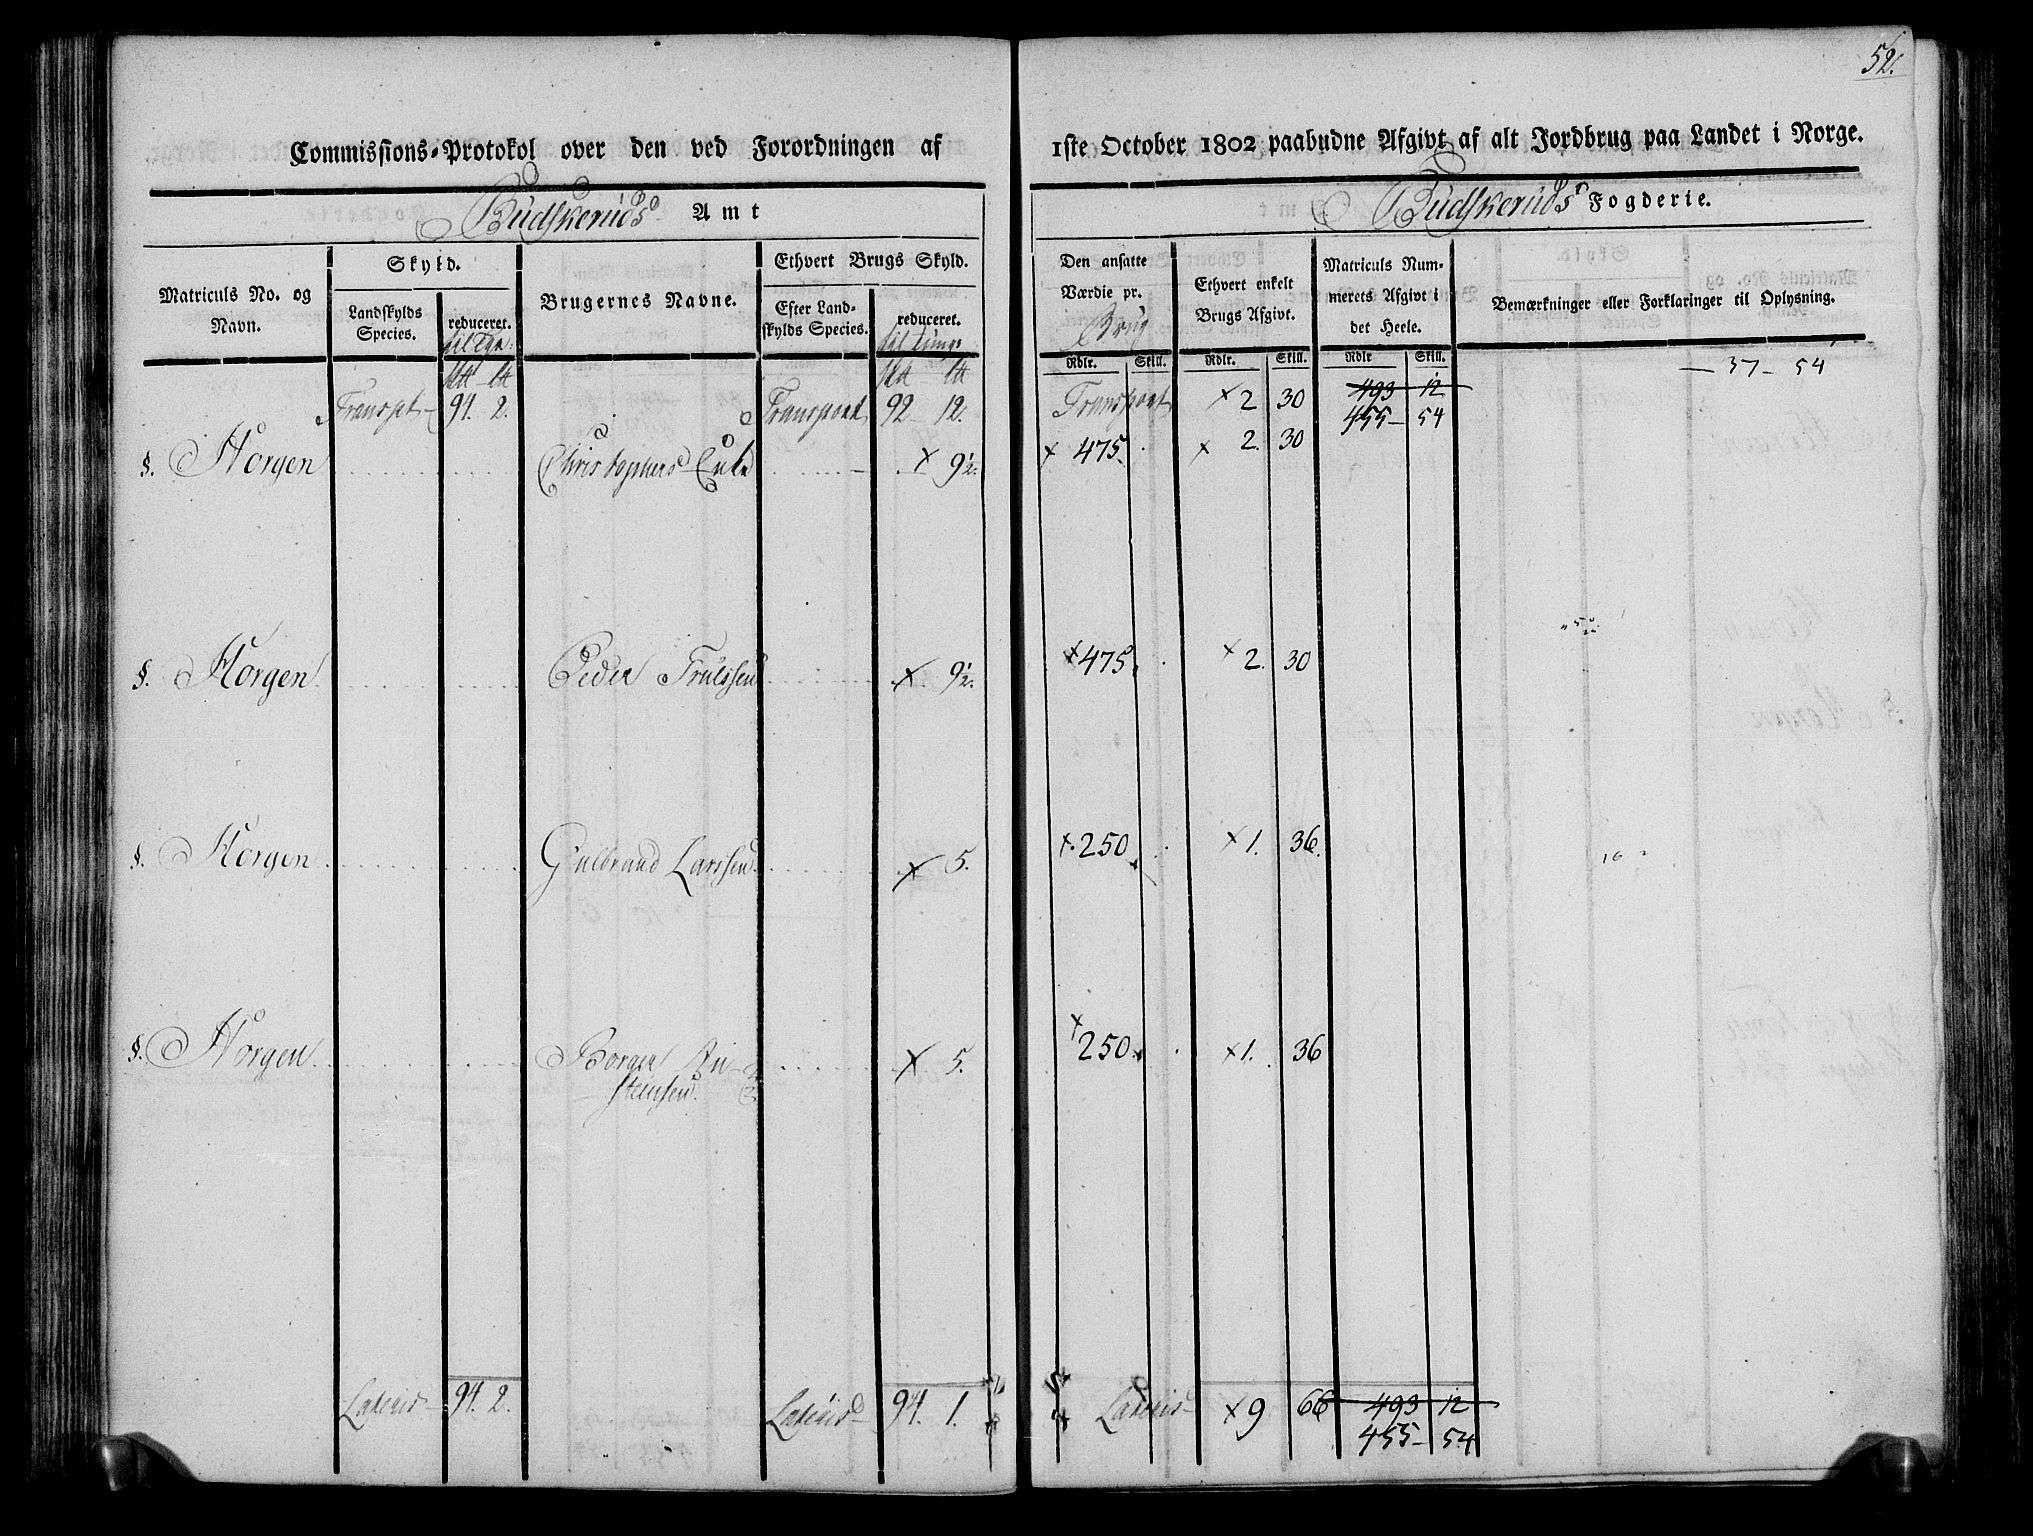 52.
Commissions-Protokol over den ved Forordningen af 1ste October 1802 paabudne Afgivt af alt Jordbrug paa Landet i Norge.
Budskeruds Amt
Budskeruds Fogderie.
Matriculs No. og Navn.
Skyld.
Landskylds Species.
reduceret.
Brugernes Navne.
Ethvert Brugs Skyld.
Efter Landskylds Species.
reduceret.
Den ansatte Værdie pr. Brug
Ethvert enkelt Brugs Afgivt.
Matriculs Nummerets Afgivt i det Heele.
Bemærkninger eller Forklaringer til Oplysning.
Rdlr. Skill. Rdlr. Skill. Rdlr Skill.
Transpt 94. 2. Transport 92 12. Transport × 2 30 493 12 — 37 — 54
455 — 54
§. Horgen Christophers Enke × 9½. × 475. × 2. 30
§. Horgen Peder Trulssen × 9½. × 475. × 2. 30
§. Horgen Gulbrand Larssen × 5. × 250 × 1. 36. 16
§. Horgen Borger × 5. × 250 × 1. 36
stensen
Lateris 94. 2. Lateris 94. 1. Lateris × 9 66 493 12
455 — 54